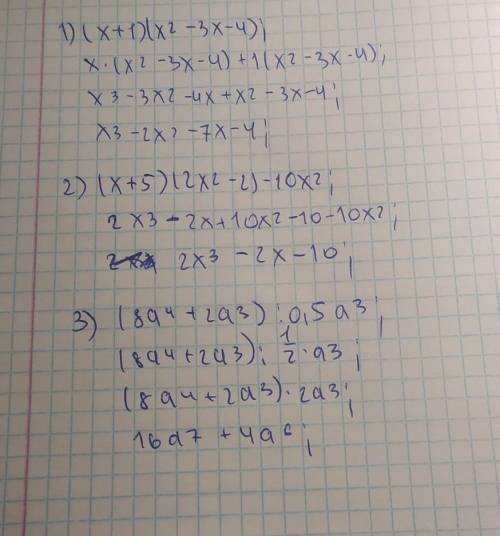 1) (x+1)(x2 -3x-4);
x·(x2 -3x-4)+1(x2-3x-4);
x3-3x2-4x+x2-3x-4;
x3-2x2-7x-4;
2) (x+5)(2x2-2)-10x2;
2x3-2x+10x2-10-10x2;
2x3-2x-10;
3) (8a4+2a3):0,5a3;
(8a4+2a3): 1/2·a3;
(8a4+2a3)·2a3;
16a7+4a6;